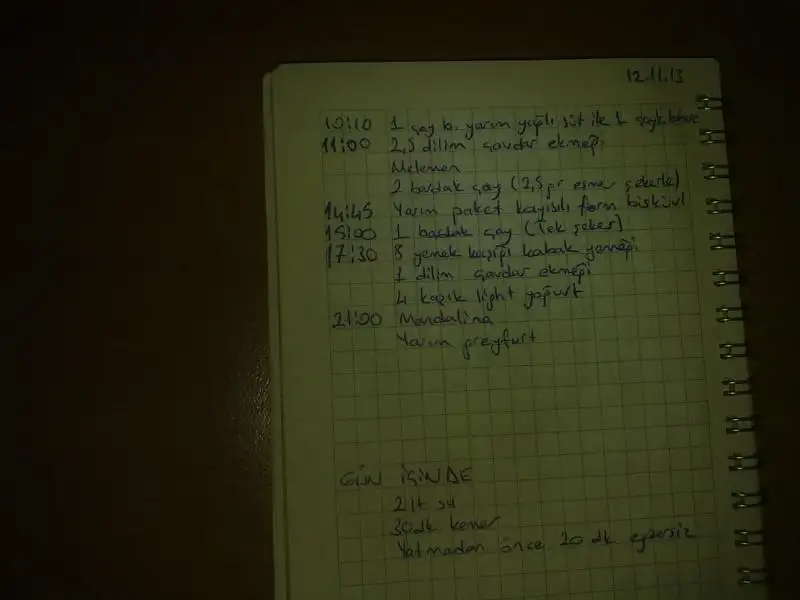 12.11.13
10:10 1 çay b. yarım yağlı süt ile 1 kahve
11:00 2,5 dilim çavdar ekmeği
Melemen
2 bardak çay (2,5 gr esmer şekerle)
14:45 Yarım paket kayısılı form bisküvi
15:00 1 bardak çay (Tek şeker)
17:30 8 yemek kaşığı kabak yemeği
1 dilim çavdar ekmeği
4 kaşık light yoğurt
21:00 Mandalina
Yarım greyfurt
GÜN İÇİNDE
2 lt su
30 dk kemer
Yatmadan önce 20 dk egzersiz